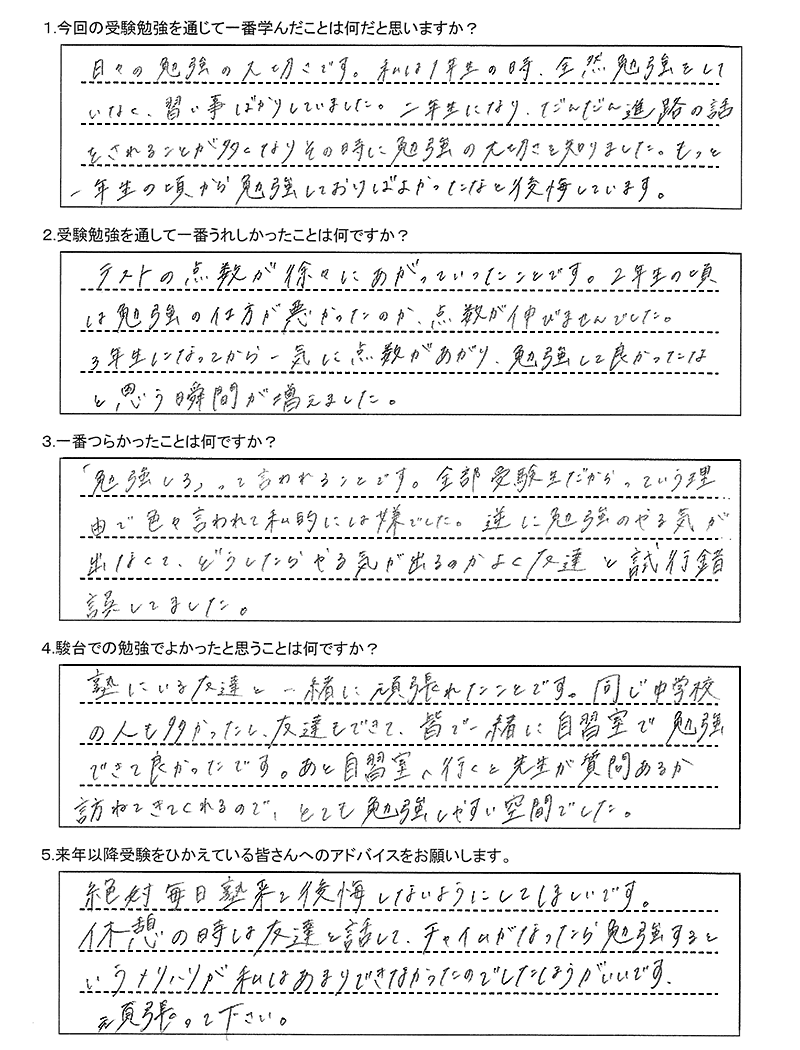 1.今回の受験勉強を通じて一番学んだことは何だと思いますか？
日々の勉強の大切さです。私は1年生の時、全然勉強をして
いなく、習い事ばかりしていました。二年生になり、だんだん進路の話
をされることが多くなりその時に勉強の大切さを知りました。もっと
一年生の頃から勉強しておけばよかったなと後悔しています。
2.受験勉強を通して一番うれしかったことは何ですか？
テストの点数が徐々にあがっていったことです。2年生の頃
は勉強の仕方が悪かったのか、点数が伸びませんでした。
3年生になってから一気に点数があがり、勉強して良かったな
と思う瞬間が増えました。
3.一番つらかったことは何ですか？
「勉強しろ」って言われることです。全部受験生だからっていう理
由で色々言われて私的には嫌でした。逆に勉強のやる気が
出なくて、どうしたらやる気が出るのかよく友達と試行錯
誤してました。
4.駿台での勉強でよかったと思うことは何ですか？
塾にいる友達と一緒に頑張れたことです。同じ中学校
の人も多かったし、友達もできて、皆で一緒に自習室で勉強
できて良かったです。あと自習室へ行くと先生が質問あるか
訪ねてきてくれるので、とても勉強しやすい空間でした。
5.来年以降受験をひかえている皆さんへのアドバイスをお願いします。
絶対毎日塾来て後悔しないようにしてほしいです。
休憩の時は友達と話して、チャイムがなったら勉強すると
いうメリハリが私はあまりできなかったのでしたほうがいいです。
頑張って下さい。